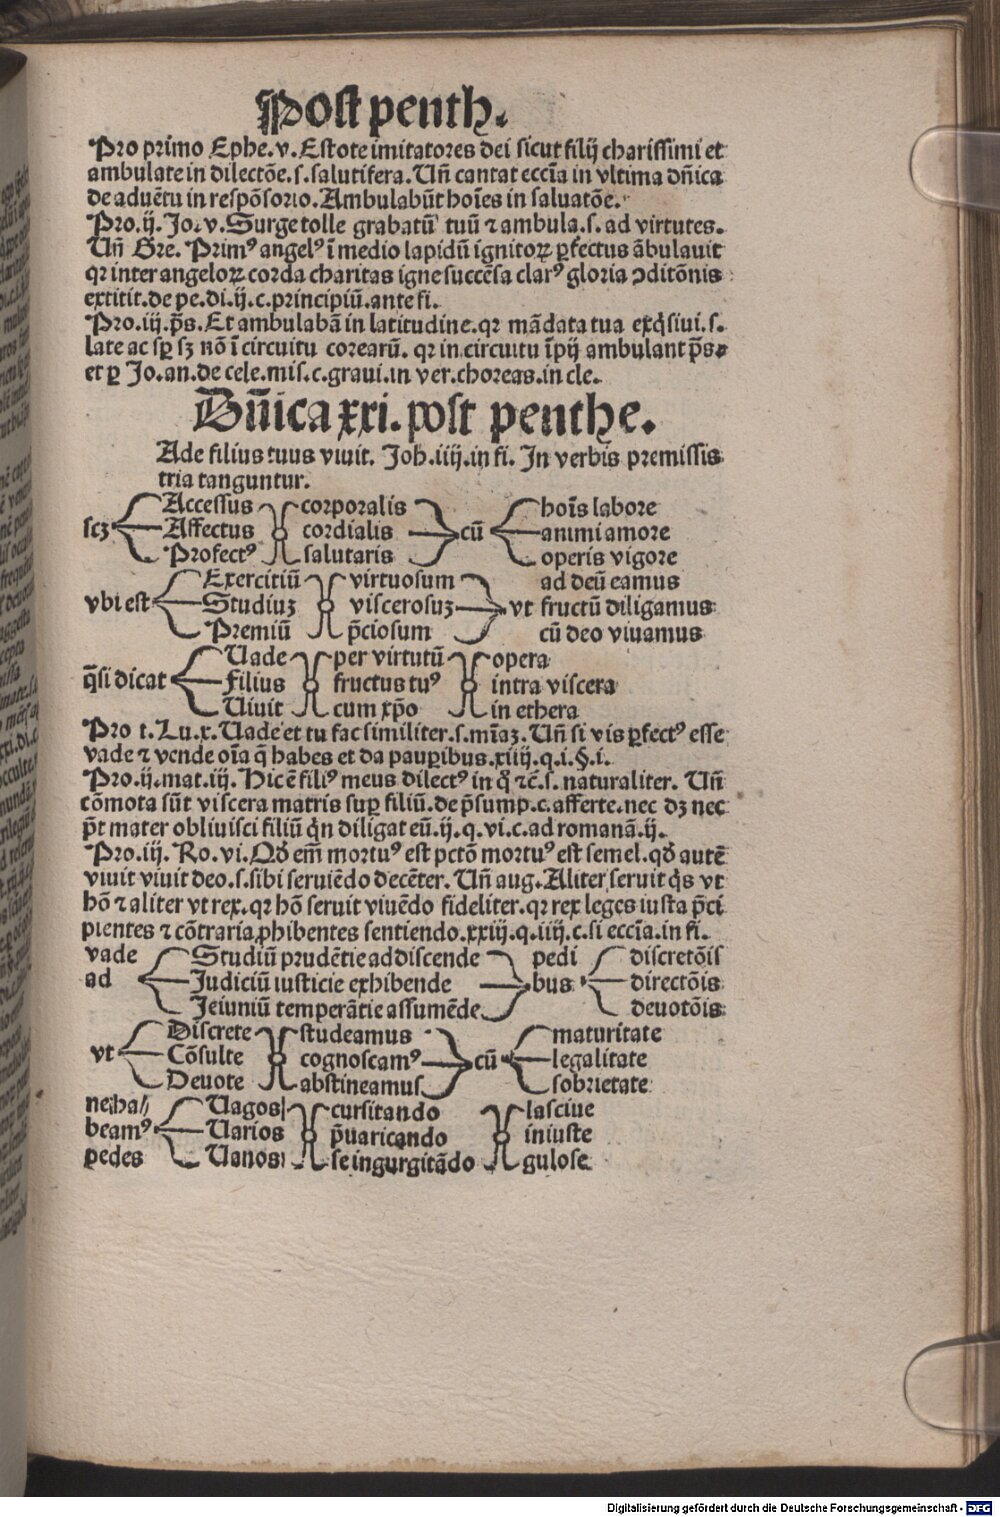 Post penth.
Pro primo Ephe.v.Estote imitatores dei sicut filij charissimi et
ambulate in dilectōe.s.salutifera.Uñ cantat ecc̄ia in vltima dñica
de aduētu in respōsorio.Ambulabūt hoīes in saluatōe.
Pro.ij.Jo.v.Surge tolle grabatū tuū ⁊ ambula.s.ad virtutes.
Uñ Gre. Primꝰ angelꝰ ī medio lapidū ignitoꝝ ꝑfectus ābulauit
qꝛ inter angeloꝝ corda charitas igne succēsa clarꝰ gloria ꝯditōnis
extitit.de pe.di.ij.c.principiū.ante fi.
Pro.iij.p̄s.Et ambulabā in latitudine.qꝛ mādata tua exq̄siui.s.
late ac sꝑ sꝫ nō ī circuitu corearū. qꝛ in circuitu īpij ambulant p̄s.
et ꝑ Jo.an.de cele.mis.c.graui.in ver.choreas.in cle.
Dñica xxi.post penthe.
Ade filius tuus viuit. Joh.iiij.in fi. In verbis premissis
tria tanguntur.
scꝫ Accessus corporalis cū hoīs labore
Affectus cordialis animi amore
Profectꝰ salutaris operis vigore
Exercitiū virtuosum ad deū eamus
vbi est Studiuꝫ viscerosuꝫ vt fructū diligamus
Premiū p̄ciosum cū deo viuamus
Uade per virtutū opera
q̄si dicat Filius fructus tuꝰ intra viscera
Uiuit cum xp̄o in ethera
Pro i.Lu.x.Uade et tu fac similiter.s.mīaꝫ.Uñ si vis ꝑfectꝰ esse
vade ⁊ vende oīa q̄ habes et da pauꝑibus.xiiij.q.i.§.i.
Pro.ij.mat.iij. Hic ē filiꝰ meus dilectꝰ in q̊ ⁊c̄.s.naturaliter. Uñ
cōmota sūt viscera matris suꝑ filiū.de p̄sump.c.afferte.nec dꝫ nec
p̄t mater obliuisci filiū q̄n diligat eū.ij.q.vi.c.ad romanā.ij.
Pro.iij.Ro.vi.Qđ em̄ mortuꝰ est pctō mortuꝰ est semel.qđ autē
viuit viuit deo.s.sibi seruiēdo decēter.Uñ aug.Aliter seruit q̄s vt
hō ⁊ aliter vt rex.qꝛ hō seruit viuēdo fideliter.qꝛ rex leges iusta p̄ci
pientes ⁊ cōtraria ꝓhibentes sentiendo.xxiij.q.iiij.c.si ecc̄ia.in fi.
vade Studiū prudētie addiscende pedi discretōis
ad Judiciū iusticie exhibende bus directōis
Jeiuniū temperātie assumēde deuotōis
Discrete studeamus maturitate
vt Cōsulte cognoscamꝰ cū legalitate
Deuote abstineamus sobrietate
ne ha⸗ Uagos cursitando lasciue
beamꝰ Uarios p̄uaricando iniuste
pedes Uanos se ingurgitādo gulose
Digitalisierung gefördert durch die Deutsche Forschungsgemeinschaft - DFG